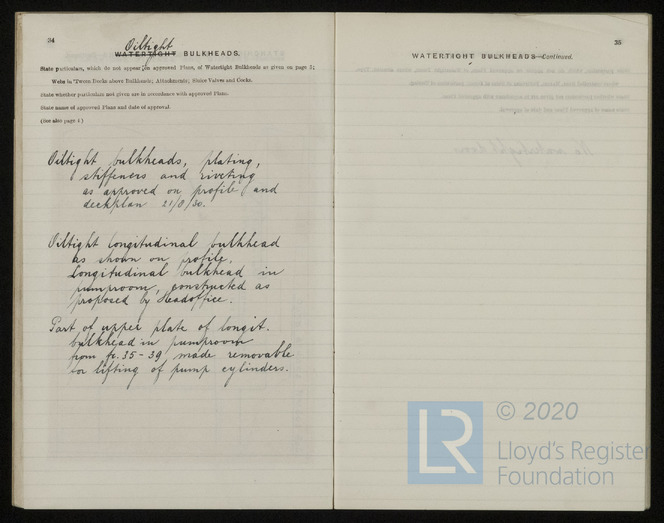 34
Oiltight
WATERTIGHT BULKHEADS.
State particulars, which do not appear on approved Plans, of Watertight Bulkheads as given on page 3;
Webs in 'Tween Decks above Bulkheads; Attachments; Sluice Valves and Cocks.
State whether particulars not given are in accordance with approved Plans.
State name of approved Plans and date of approval.
(See also page 4)
Oiltight bulkheads, plating,
stiffeners and riveting
as approved on profile and
deckplan 30.
Oiltight longitudinal bulkhead
as shown on profile.
Longitudinal bulkhead in
pumproom, constructed as
proposed by Headoffice.
Part of upper plate of longit.
bulkhead in pumproom
from fr. 35-39 made removable
for lifting of pump cylinders.
35
WATERTIGHT BULKHEADS—Continued.
LR
© 2020
Lloyd's Register
Foundation